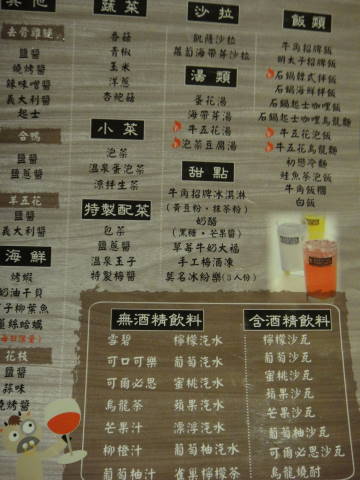 其他
去骨雞腿
鹽醬
燒烤醬
辣味噌醬
義大利醬
起士
合鴨
鹽醬
鹽蔥醬
羊五花
鹽醬
義大利醬
海鮮
烤蝦
奶油干貝
子柳葉魚
蘿絲蛤蠣
每日限量
花枝
鹽醬
蒜味
燒烤醬
蔬菜
香菇
青椒
玉米
洋蔥
杏鮑菇
小菜
泡菜
溫泉蛋泡菜
涼拌生菜
特製配菜
包菜
鹽蔥醬
溫泉玉子
特製梅醬
沙拉
凱薩沙拉
蘿蔔海帶芽沙拉
湯類
蛋花湯
海帶芽湯
牛五花湯
泡菜豆腐湯
甜點
牛角招牌冰淇淋
(黃豆粉·抹茶粉)
奶酪
(黑糖·芒果醬)
草莓牛奶大福
手工梅酒凍
莫名冰紛樂(3人份)
飯類
牛角招牌飯
明太子招牌飯
石鍋韓式拌飯
石鍋海鮮拌飯
石鍋起士咖哩飯
石鍋起士牛肉咖哩飯
牛五花泡飯
牛五花烏龍麵
初戀冷麵
鮭魚茶泡飯
牛角飯糰
白飯
無酒精飲料
雪碧
可口可樂
可爾必思
烏龍茶
芒果汁
柳橙汁
葡萄柚汁
檸檬汽水
葡萄汽水
蜜桃汽水
蘋果汽水
漂浮汽水
葡萄柚汽水
雀巢檸檬茶
含酒精飲料
檸檬沙瓦
葡萄沙瓦
蜜桃沙瓦
蘋果沙瓦
芒果沙瓦
葡萄柚沙瓦
可爾必思沙瓦
烏龍燒酎